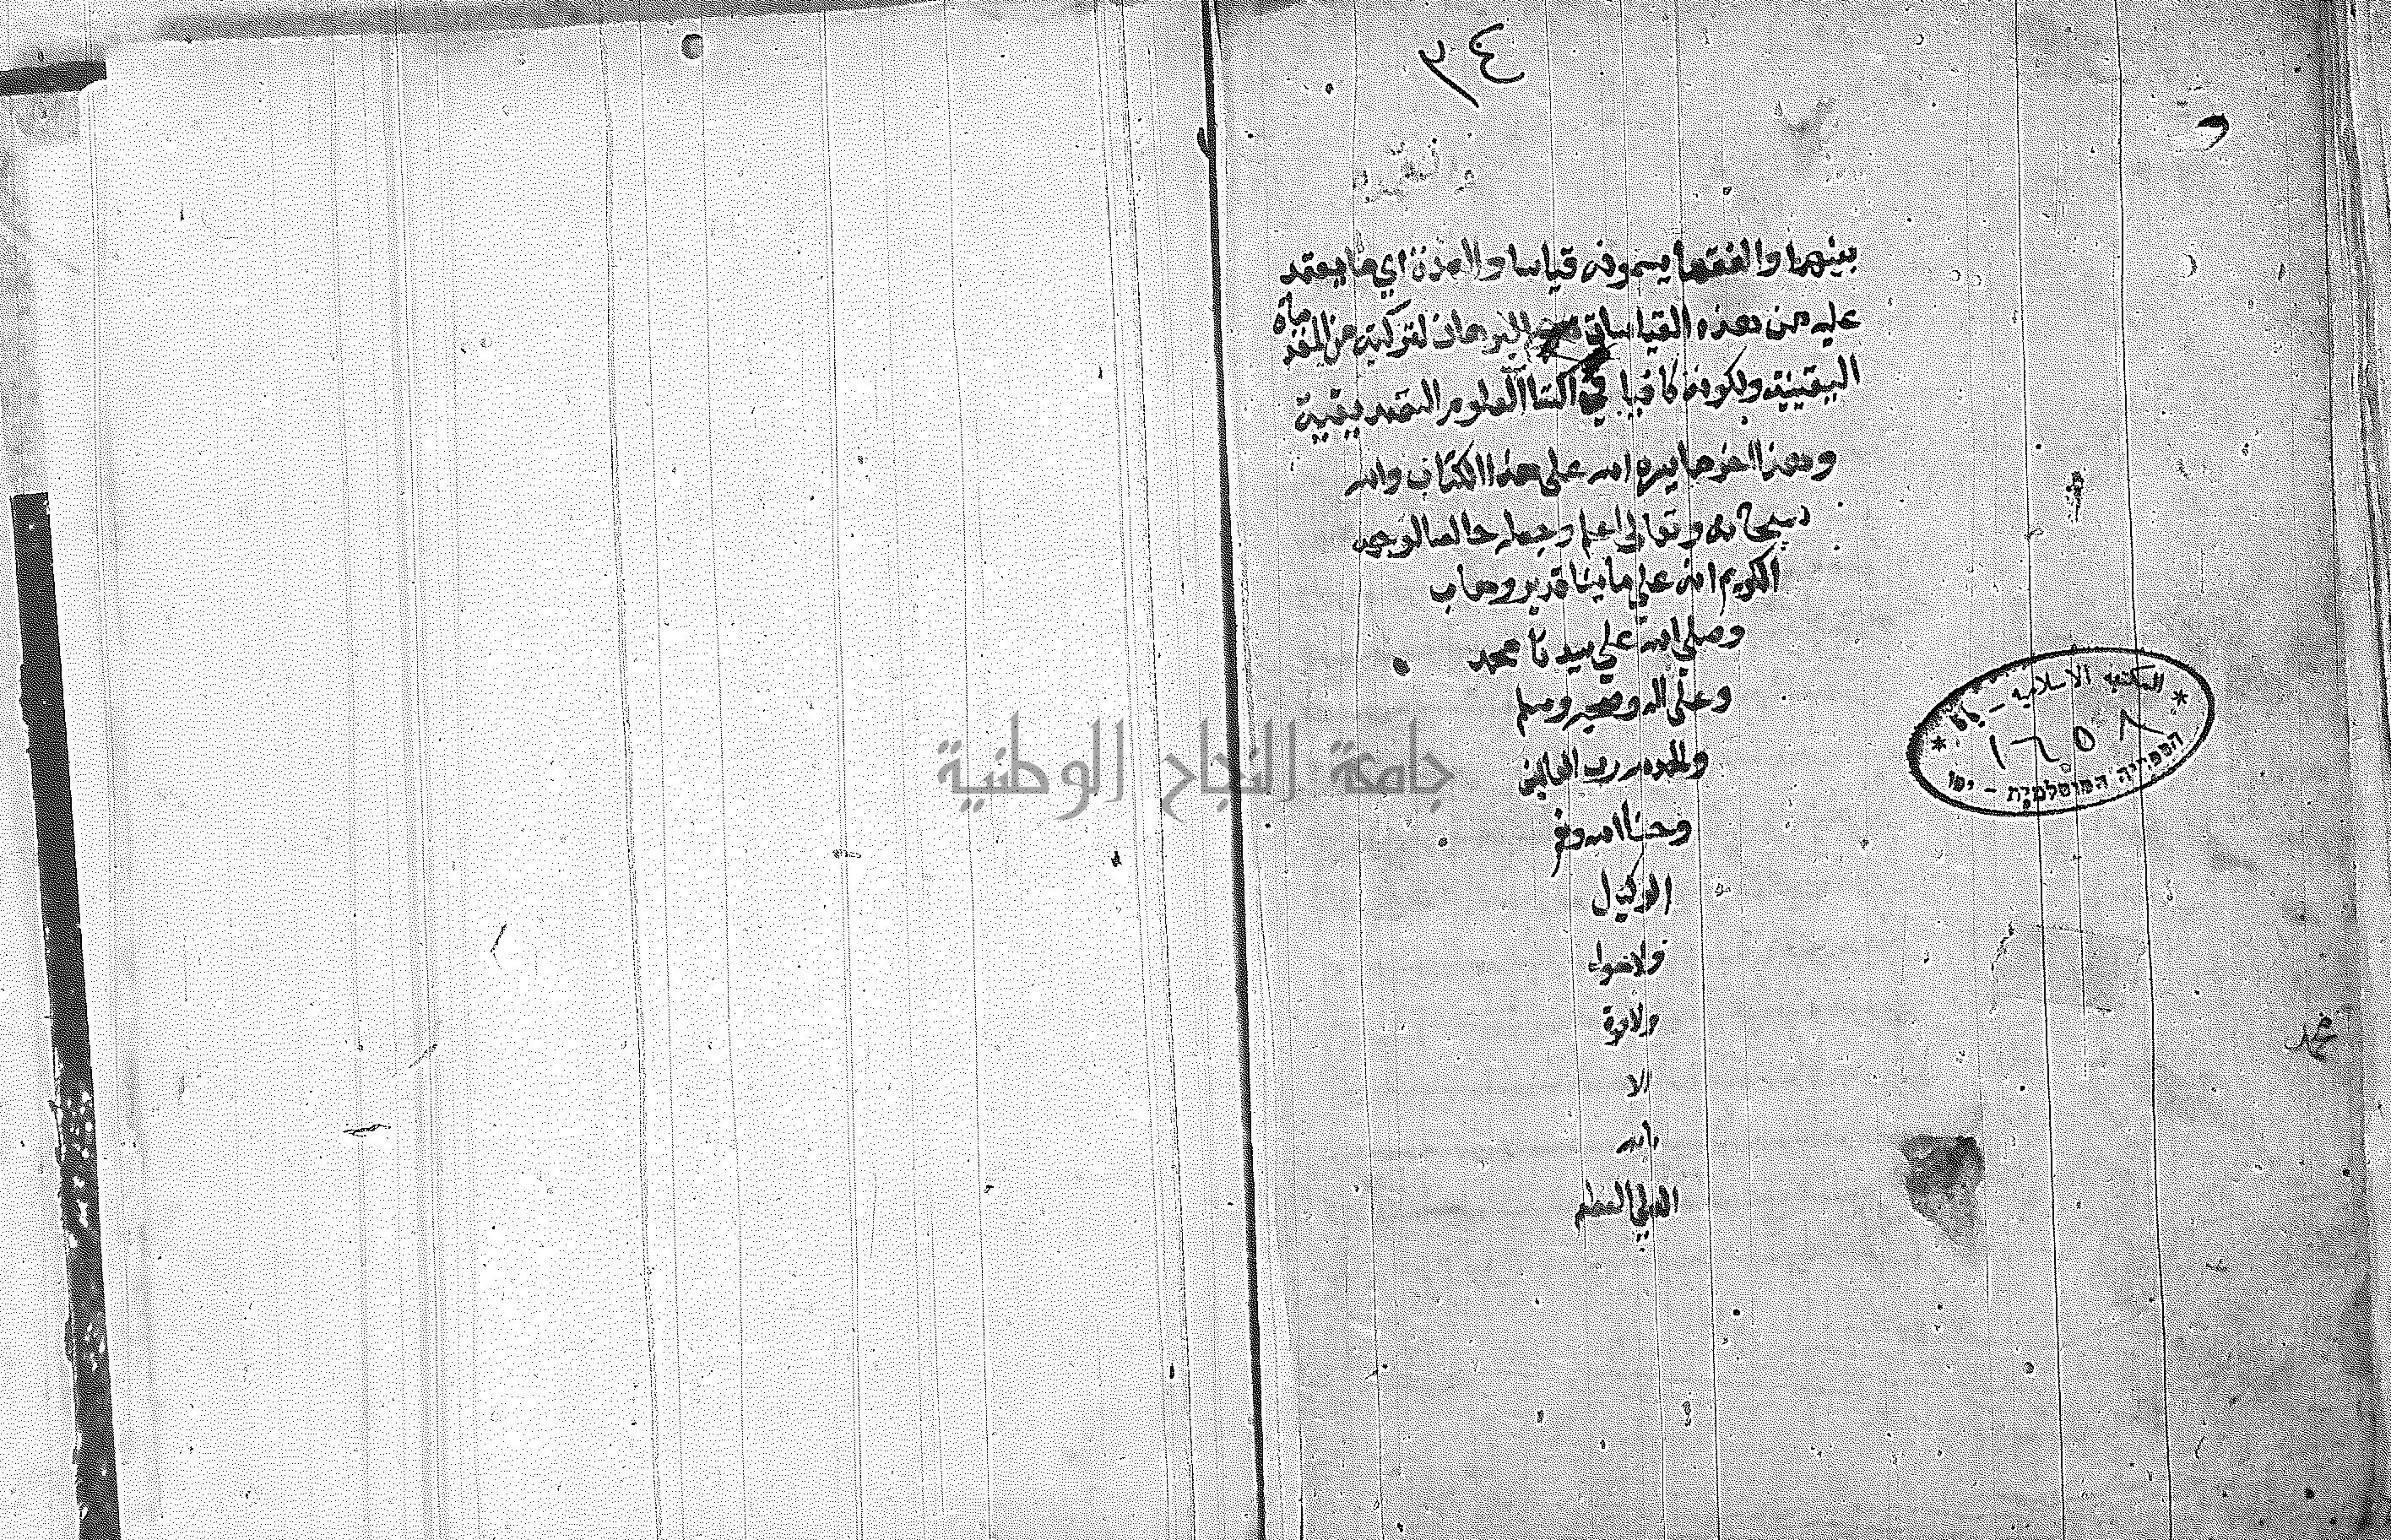 ٣٤
بينهما والفقها يسمونه قياسا والعمدة اي ما يعتمد
عليه من هذه القياسات البرهان لتركبه من المقدماة
اليقينية ولكونه كافيا في اكتسا العلوم التصديقية
وهذا اخر ما يسره الله على هذا الكتاب والله
سبحانه وتعالى اعلم وجعله خالصا لوجهه
الكريم انه على ما يشا قدير وهاب
وصلى الله على سيدنا محمد
وعلى اله وصحبه وسلم
والحمد لله رب العالمين
وحسبنا الله ونعم
الوكيل
ولا حول
ولا قوة
الا
بالله
العلي العظيم
المكتبة الاسلامية - يافا
١٦٥٨
הספריה המוסלמית - יפו
محمد
جامعة النجاح الوطنية